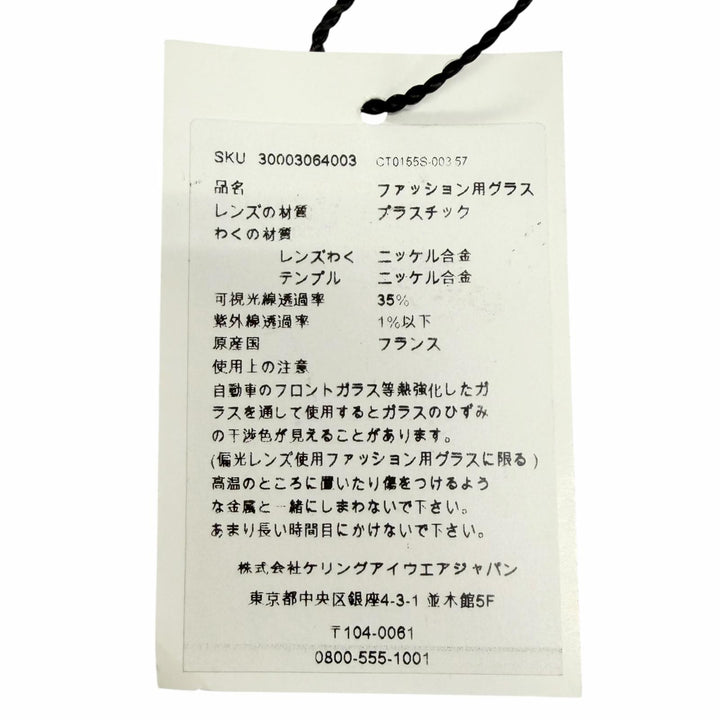 SKU 30003064003 CT0155S-003 57
品名 ファッション用グラス
レンズの材質 プラスチック
わくの材質
レンズわく ニッケル合金
テンプル ニッケル合金
可視光線透過率 35%
紫外線透過率 1%以下
原産国 フランス
使用上の注意
自動車のフロントガラス等熱強化したガ
ラスを通して使用するとガラスのひずみ
の干渉色が見えることがあります。
(偏光レンズ使用ファッション用グラスに限る)
高温のところに置いたり傷をつけるよう
な金属と一緒にしまわないで下さい。
あまり長い時間目にかけないで下さい。
株式会社ケリングアイウエアジャパン
東京都中央区銀座4-3-1 並木館5F
〒104-0061
0800-555-1001